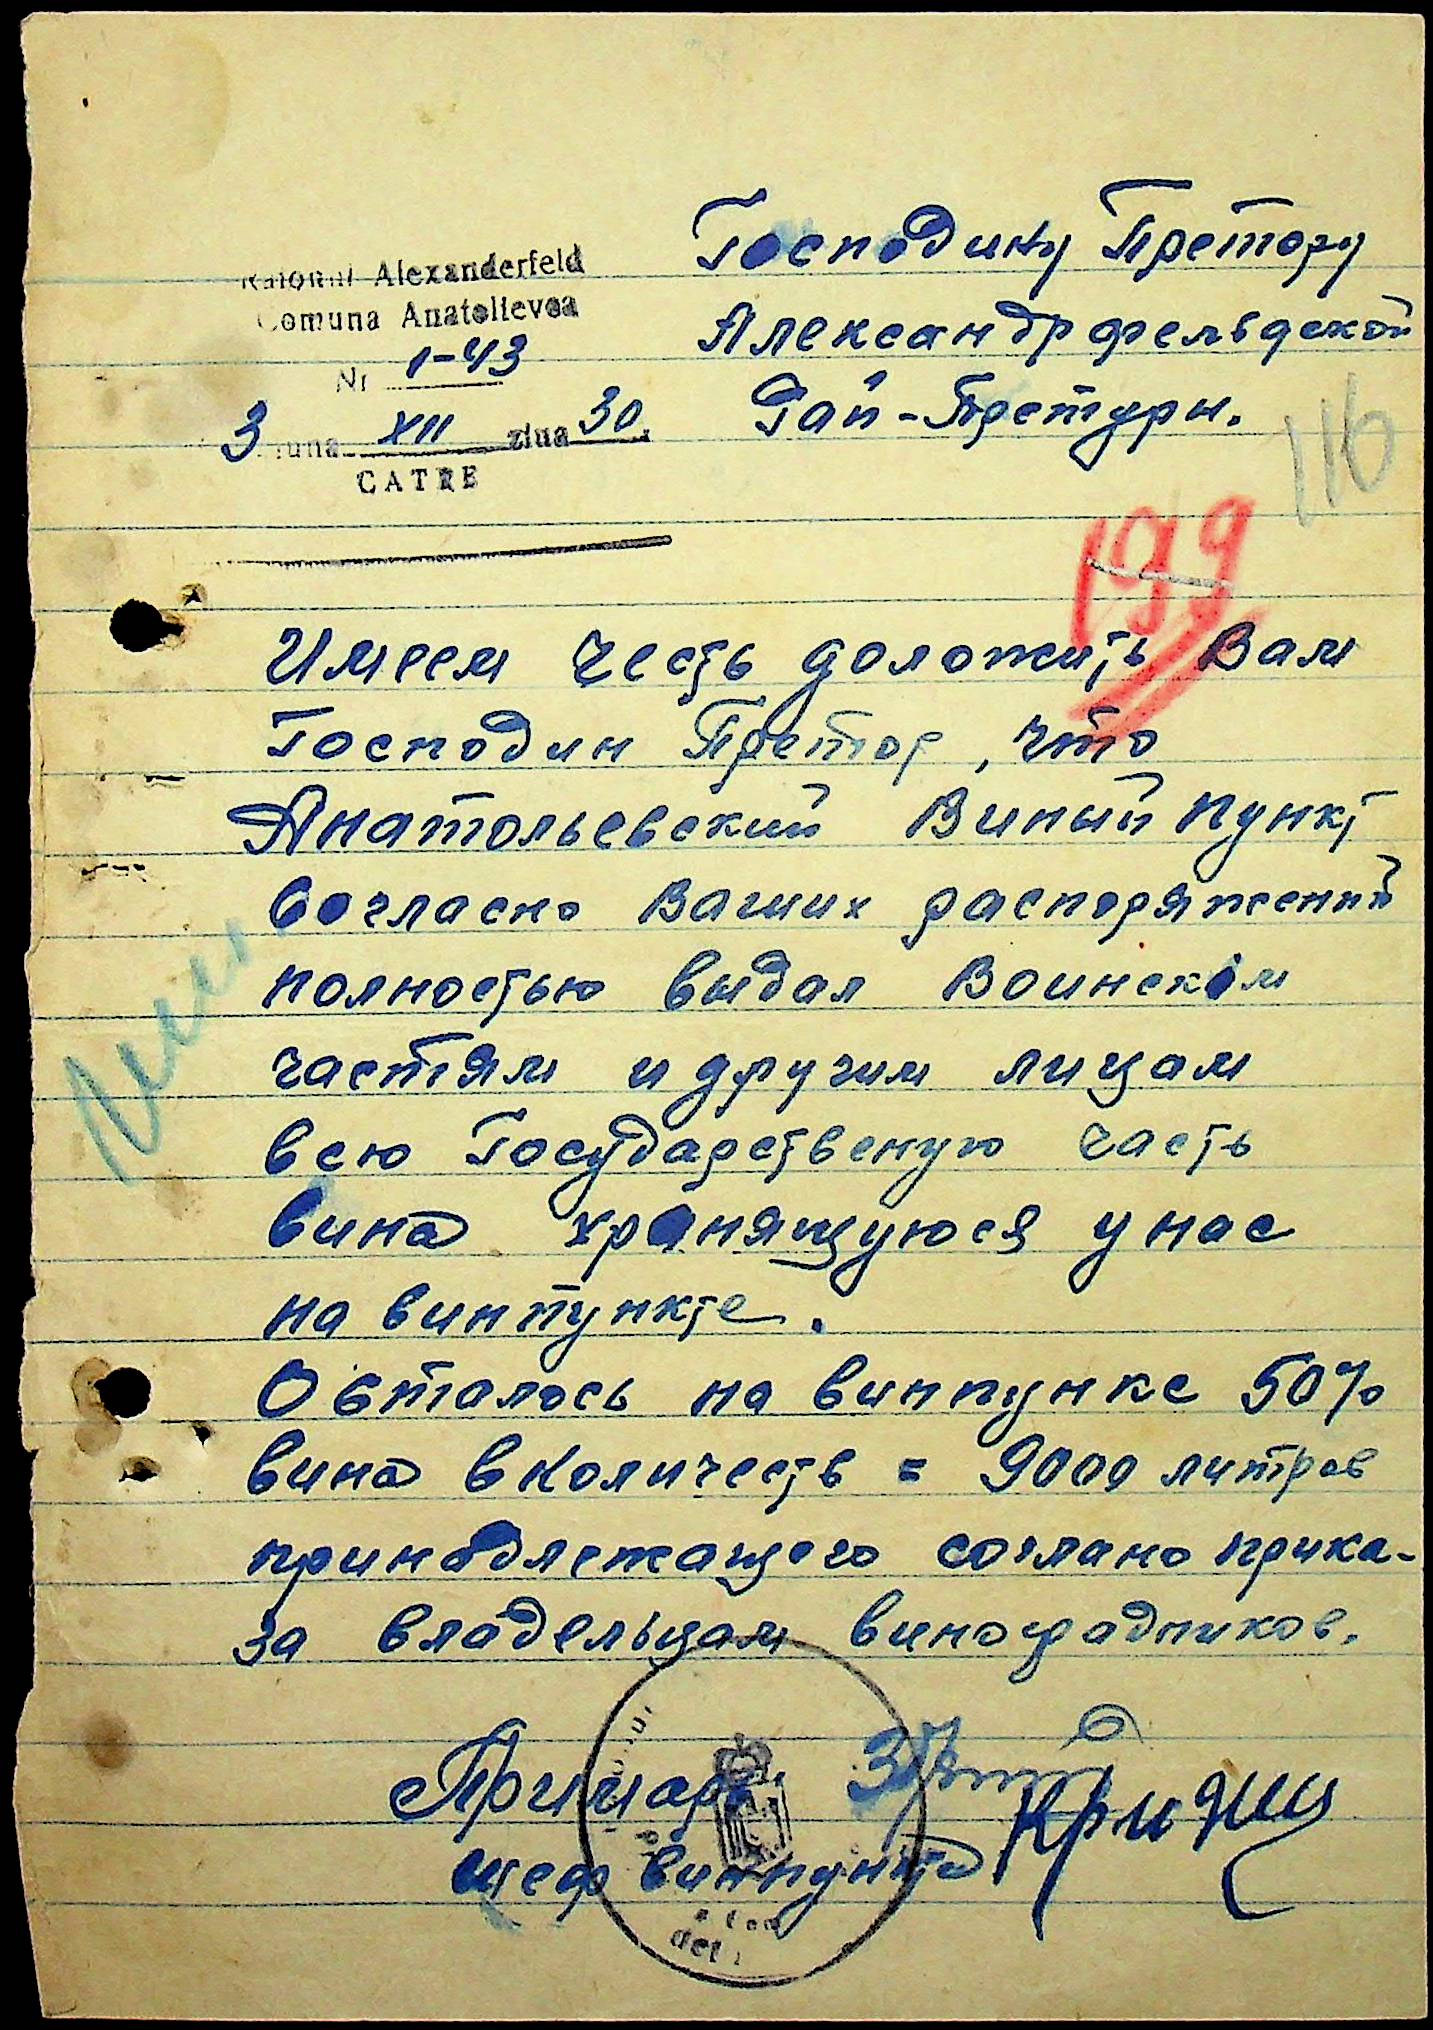 Raionul Alexanderfeld
Comuna Anatolievca
Nr 1-43
3 luna XII ziua 30.
CATRE
Господину Претору
Александрфельдской
Рай-Претуры.
116
199
Имеем честь доложить Вам
Господин Претор, что
Анатольевский Виный пункт
согласно Ваших распоряжений
полностью выдал Воинским
частям и другим лицам
всю Государственую часть
вина хранящуюся у нас
на винпункте.
Осталось на винпунке 50%
вина в количеств = 9000 литров
принадлежащего согланο прика-
за владельцам виноградников.
Примарь
шеф винпункта